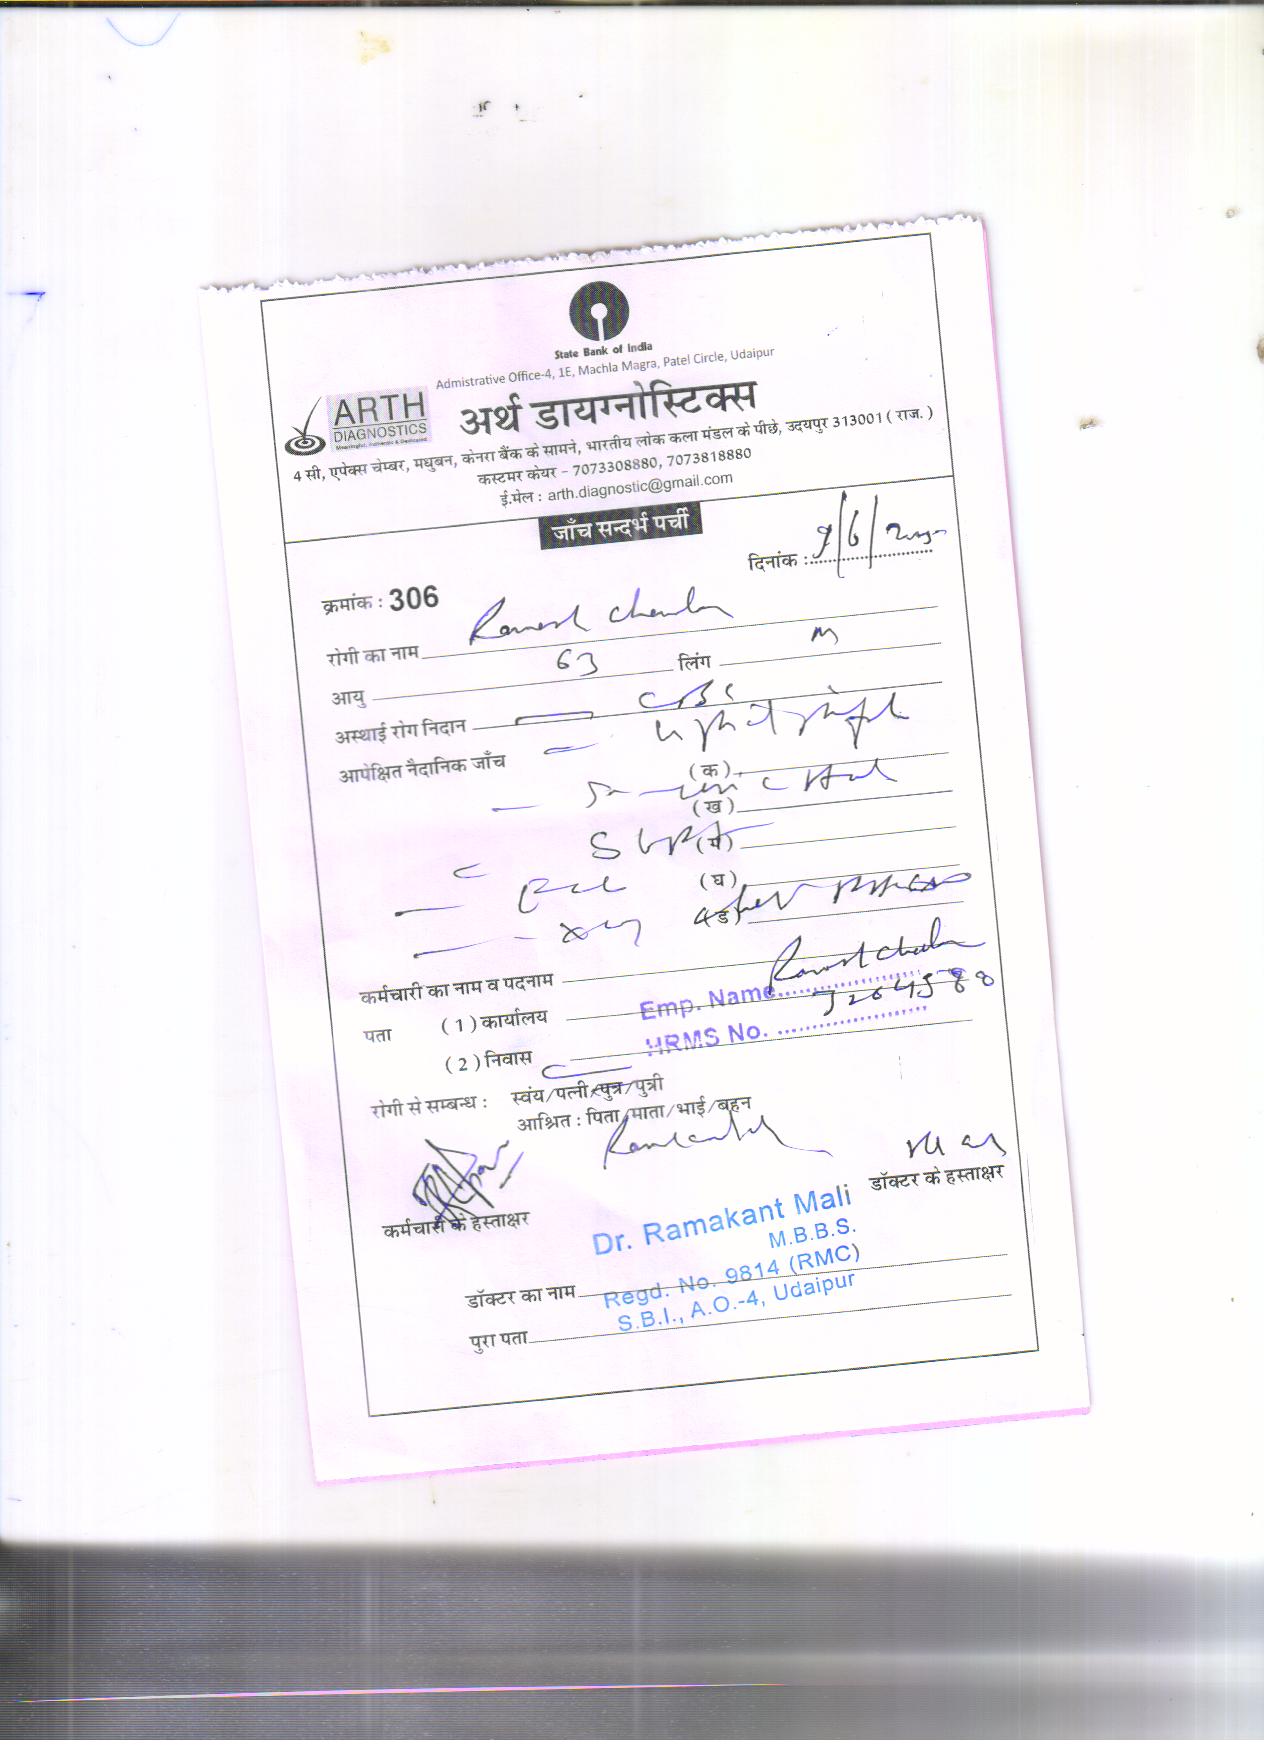 State Bank of India
Admistrative Office-4, 1E, Machla Magra, Patel Circle, Udaipur
ARTH
DIAGNOSTICS
अर्थ डायग्नोस्टिक्स
4 सी, एपेक्स चेम्बर, मधुबन, केनरा बैंक के सामने, भारतीय लोक कला मंडल के पीछे, उदयपुर 313001 ( राज. )
कस्टमर केयर - 7073308880, 7073818880
ई.मेल : arth.diagnostic@gmail.com
जाँच सन्दर्भ पर्ची
दिनांक : 9/6/
क्रमांक : 306
रोगी का नाम Ramesh Chandra
आयु 63 लिंग M
अस्थाई रोग निदान CBC
आपेक्षित नैदानिक जाँच
( क )
( ख )
( ग )
( घ )
( ड )
कर्मचारी का नाम व पदनाम Ramesh Chandra
Emp. Name
पता ( 1 ) कार्यालय
HRMS No.
( 2 ) निवास
रोगी से सम्बन्ध : स्वंय/पत्नी/पुत्र/पुत्री
आश्रित : पिता/माता/भाई/बहन
कर्मचारी के हस्ताक्षर
डॉक्टर के हस्ताक्षर
Dr. Ramakant Mali
M.B.B.S.
डॉक्टर का नाम Regd. No. 9814 (RMC)
S.B.I., A.O.-4, Udaipur
पुरा पता